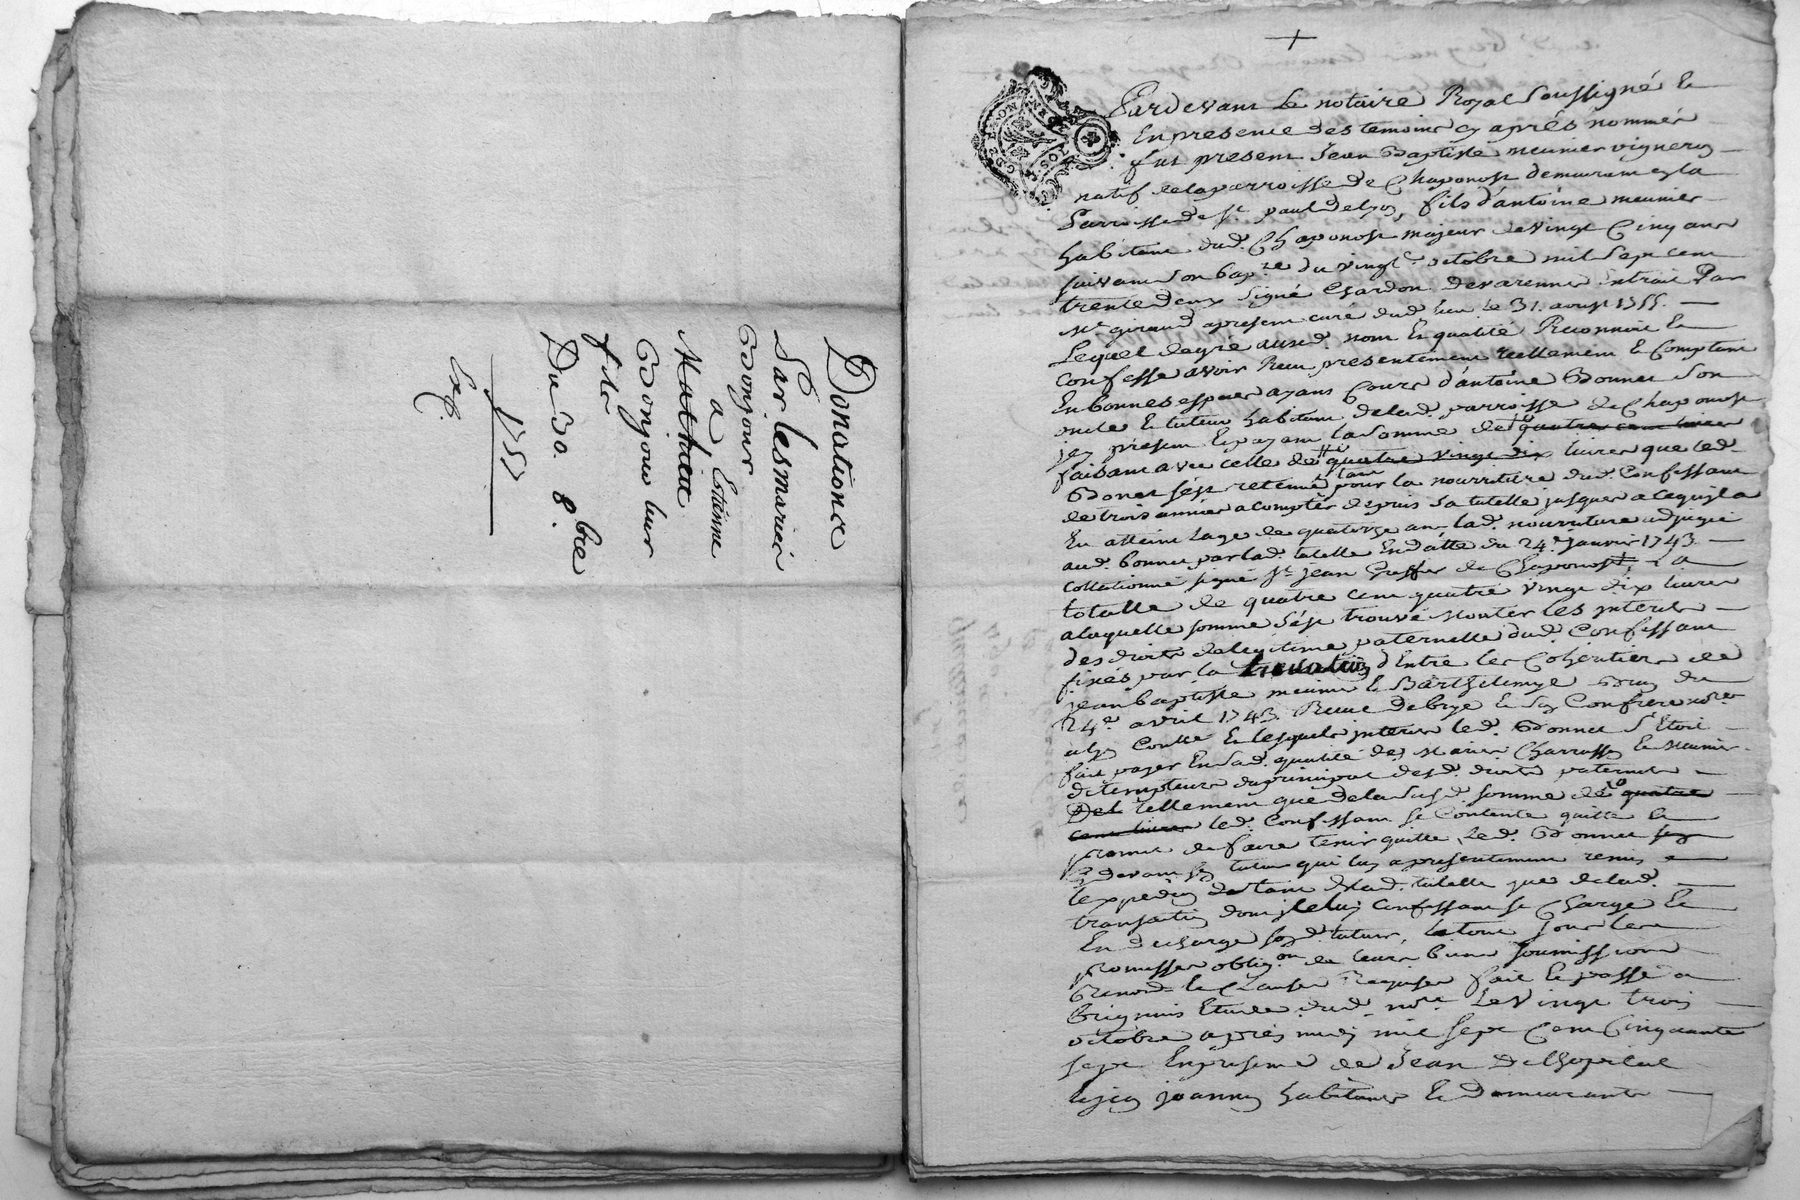 Donation
Par les mariés
Bonjour
a Estienne
Mathieu
Bonjour leur
fils
Du 30. 8.bre
1757
Exp.
Pardevant Le notaire Royal soussigné Et
En presence des temoins cy aprês nommés
fut present Jean Baptiste meunier vigneron
natif de la parroisse de Chaponost demeurant en la
Parroisse de St. paul de lyon, fils d'antoine meunier
habitant dud. Chaponost majeur de vingt Cinq ans
suivant son bap.re du vingt octobre mil sept cent
trente deux signé Chardon Devarenne Extrait Par
Mr. giraud apresent curé dud. lieu le 31. aoust 1755.
Lequel de gré aud. nom Et qualité Reconnoit Et
Confesse avoir Receu presentement reellement Et Comptant
En bonnes especes ayans Cours d'antoine Bonnet son
oncle Et tuteur habitant de lad. parroisse de Chaponost
icy present Et payant La somme de quatre cent livres
faisant avec celle de quatre vingt dix livres que led.
Bonnet s'est retenüe tant pour la nourriture dud. Confessant
de trois années a compter depuis sa tutelle jusques a ce qu'il a
Eu atteint l'age de quatorze ans, lad. nourriture adjugée
aud. bonnet par lad. tutelle En datte du 24.e janvier 1743.
Collationné signé St. jean Greffier de Chaponost, La
totalle de quatre cent quatre vingt dix livres
a laquelle somme s'est trouvé monter les interets
des droits de legitime paternelle dud. Confessant
fixés par la transaction d'Entre les Coheritiers de
jean baptiste meunier Et Barthelemye Brun du
24.e avril 1743. Receue Debrye Et son Confrere no.res
a lyon Contre Et lesquels interets led. Bonnet s'Etoit
fait payer En lad. qualité de Marie Charrasson Et Meunier
detempteurs du principal desd. droits paternels
Del tellement que de la susd. somme de quatre
cent livres led. Confessant se Contente quitte Et
promet de faire tenir quitte, led. Bonnet son
Cy devant tuteur qui luy a presentement remis
l'expedition tant de lad. tutelle que de lad.
transaction dont icelui confessant se Charge Et
En decharge sond. tuteur, le tout sous leurs
promesses oblig.on de leurs biens soumissions
Renon.on Et Clauses Requises fait Et passé a
Brignais Etude dud. no.re Le Vingt trois
octobre aprés midy mil sept Cent Cinquante
sept En presence de Jean Delhopital
joanny habitants Et Demeurants